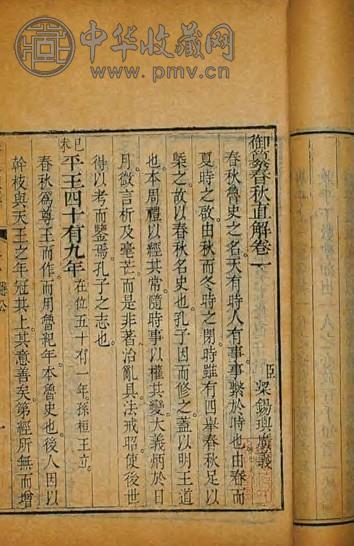 中华收藏网
www.pmv.cn
御纂春秋直解卷一
臣梁錫璵廣義
春秋魯史之名天有時人有事事繫於時也由春而
夏時之敭由秋而冬時之閉時雖有四舉春秋足以
槩之故以春秋名史也孔子因而修之蓋以明王道
也本周禮以經其常隨時事以權其變大義炳於日
月微言析及毫芒而是非著治亂具法戒昭使後世
得以考而鑒焉孔子之志也
己未平王四十有九年在位五十有一年孫桓王立
春秋爲尊王而作而用魯祀年本魯史也後人因以
幹枝與天王之年冠其上其意善矣第經所無而增